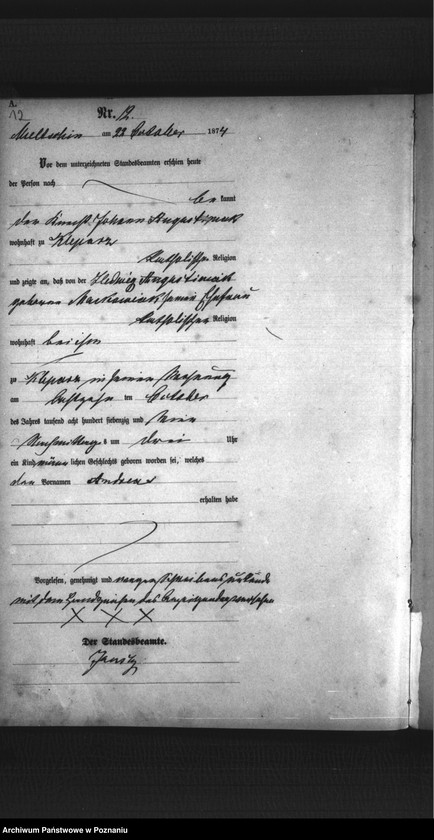 A.
12
Nr. 12.
am 22 October 1874
Vor dem unterzeichneten Standesbeamten erschien heute
der Person nach
be kannt
der Knecht Johann
wohnhaft zu Kleparz
katholischer Religion
und zeigte an, daß von der Hedwig
geborene seiner Ehefrau
katholischer Religion
wohnhaft bei ihm
zu Kleparz in seiner Wohnung
am ten October
des Jahres tausend acht hundert siebenzig und vier
Nachmittags um drei Uhr
ein Kind männlichen Geschlechts geboren worden sei, welches
den Vornamen Andreas
erhalten habe
Vorgelesen, genehmigt und wegen
mit dem Handzeichen des versehen
X X X
Der Standesbeamte.
Archiwum Państwowe w Poznaniu